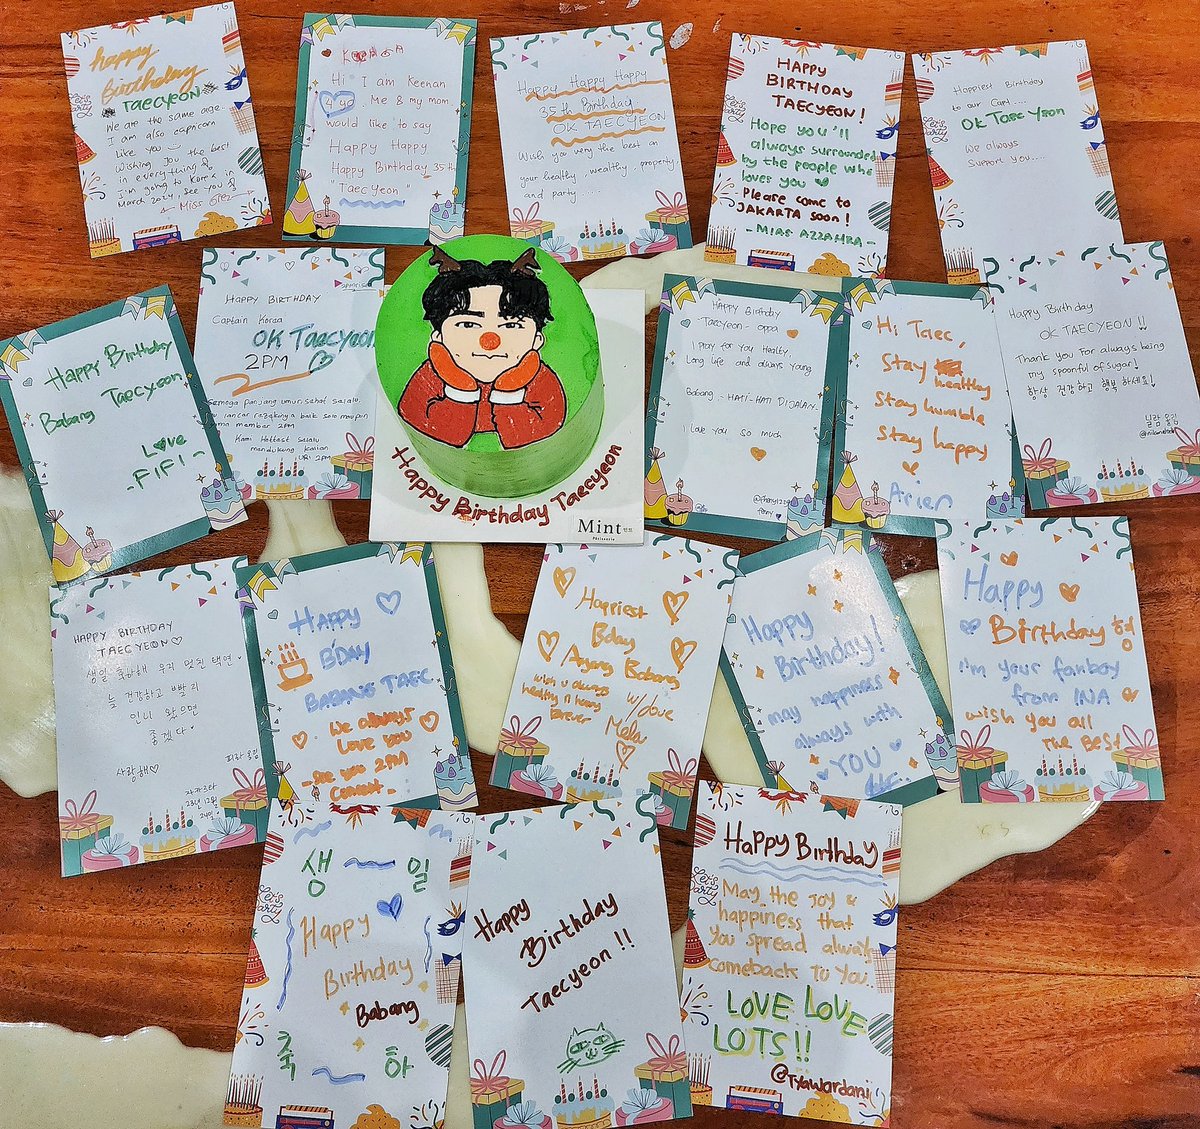 happy
Birthday
TAECYEON
We are the same age
I am also capricorn
like you
Wishing you the best
in everything
i'm going to Korea in
March 2024, see you
- Miss Giez
Let's
Party
Hi I am Keenan
4 yo. Me & my mom
would like to say
Happy Happy
Happy Birthday 35th
"Taec Yeon"
Happy Happy Happy
35th Birthday
OK TAECYEON
Wish you very the best on
your healthy, wealthy, property,
and party .....
HAPPY
BIRTHDAY
TAECYEON!
Hope you'll
always surrounded
by the people who
loves you
Please come to
JAKARTA soon!
- MIAS AZZAHRA -
Let's
Party
Happiest Birthday
to our Capt....
Ok Taec Yeon
We always
Support you....
Let's
Party
Happy Birthday
Babang Taecyeon
Love
- FIFI -
HAPPY BIRTHDAY
Captain Korea
OK TAECYEON
2PM
Semoga panjang umur, sehat selalu,
lancar rezekinya baik solo maupun
sama member 2pm
Kami Hottest selalu
mendukung kalian
URI 2PM
Happy Birthday Taecyeon
Mint
민트
Pâtisserie
HAPPY Birthday
- Taecyeon - oppa
I pray for You Healty,
Long life and always Young
Babang - HATI-HATI DIJALAN.
I Love You so much
Hi Taec,
Stay healthy
Stay humble
Stay happy
Arien
Happy Birthday
OK TAECYEON !!
Thank you For always being
my spoonful of sugar!
항상 건강하고 행복 하세요!
HAPPY BIRTHDAY
TAECYEON♡
생일 축하해 우리 멋진 택연
늘 건강하고 빨리
인니 왔으면
좋겠다
사랑해♡
자카르타
23년 12월
24일
HAPPY
B'DAY
BABANG TAEC
We always
Love you
- See you 2PM
Concert -
Happiest
Bday
Anyang Babang
wish u always
healthy n happy
forever
w/ love
Mela
Happy
Birthday!
may happiness
always with
YOU
Happy
Birthday 형
I'm your fanboy
from INA
wish you all
the BEST
생 일
Happy
Birthday
Babang
축 하
Let's
Party
Happy
Birthday
Taecyeon !!
Happy Birthday
May the joy &
happiness that
you spread always
comeback to you..
LOVE LOVE
LOTS!!
@Tyawardani
Let's
Party